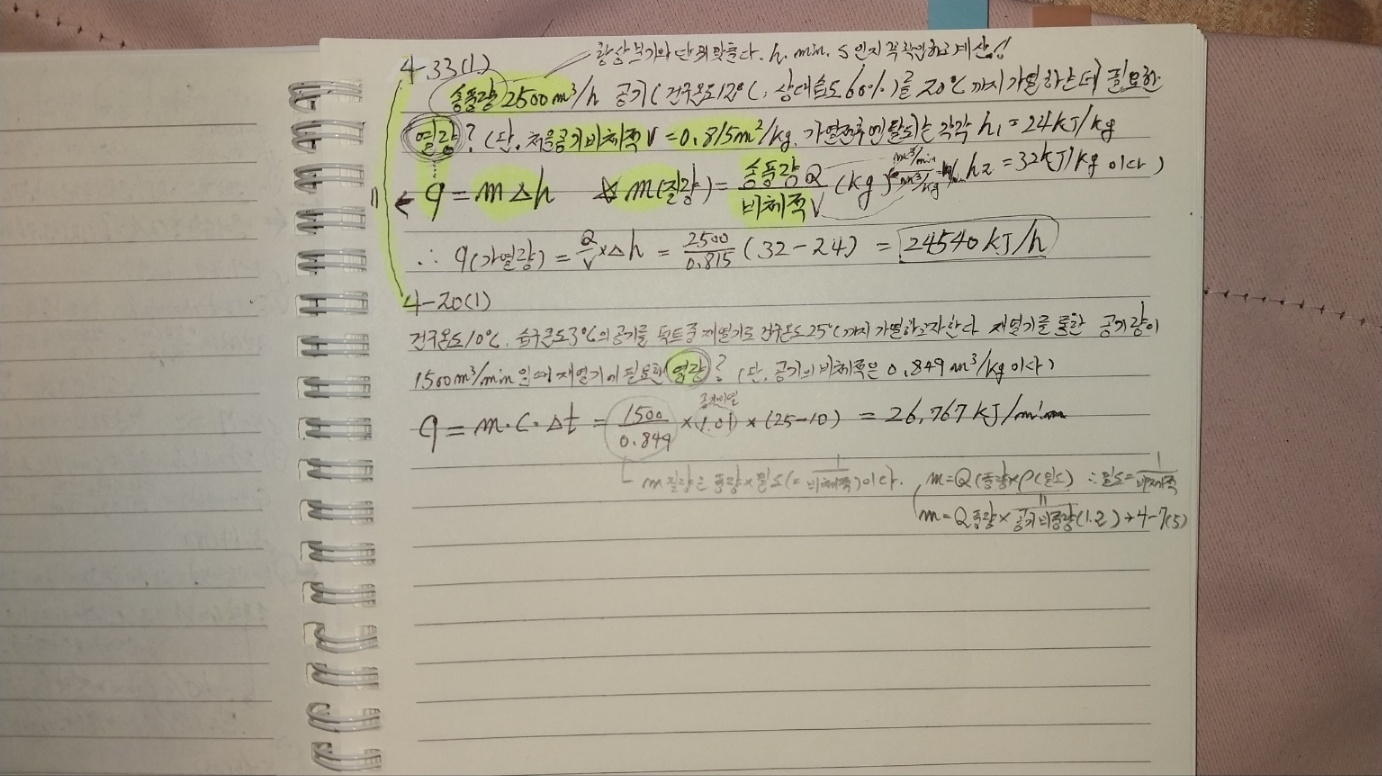 항상 보기와 단위 맞춘다. h, min, s 인지 꼭 확인하고 계산!!
4-33(1)
송풍량 2500m³/h 공기(건구온도12℃, 상대습도60%)를 20℃까지 가열하는데 필요한
열량? (단, 처음공기비체적 V=0.815m³/kg, 가열전후엔탈피는 각각 h₁=24kJ/kg
h₂=32kJ/kg 이다)
q = mΔh ☆ m(질량) = 송풍량Q / 비체적V (kg) m³/min / m³/kg
∴ q(가열량) = Q/V × Δh = 2500/0.815 (32-24) = 24540kJ/h
4-20(1)
건구온도10℃, 습구온도3℃의 공기를 덕트중 재열기로 건구온도25℃까지 가열하고자한다 재열기를 통한 공기량이
1500m³/min일때 재열기에 필요한 열량? (단, 공기의 비체적은 0.849m³/kg이다)
공기비열
q = m·C·Δt = 1500/0.849 × 1.01 × (25-10) = 26,767kJ/min
m질량은 풍량×밀도(=1/비체적)이다. m=Q(풍량)×ρ(밀도) ∴밀도=1/비체적
m=Q풍량×공기비중량(1.2)→4-7(5)